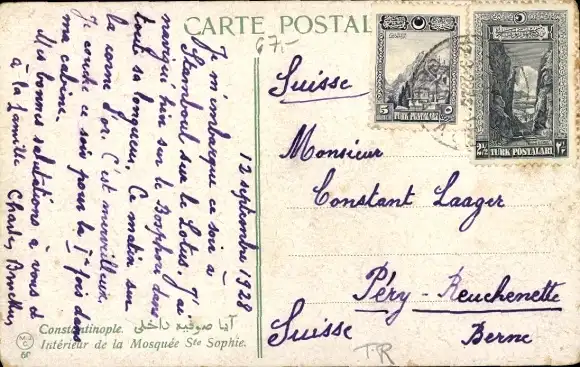 CARTE POSTAL
67.-
12 septembre 1928
Je m'embarque ce soir à
Stamboul sur le Lotus. J'ai
navigué hier sur le Bosphore dans
toute sa longueur. Ce matin sur
la corne d'or. C'est merveilleux.
Je couche ce soir pour la 1e fois dans
ma cabine.
Mes bonnes salutations à vous et
à la famille Charles
Suisse
Monsieur
Constant Laager
Péry-Reuchenette
Berne
Suisse
5
TURK POSTALARI
2½
TURK POSTALARI
Constantinople. آيا صوفيه داخلى
Intérieur de la Mosquée Ste Sophie.
60
T-R